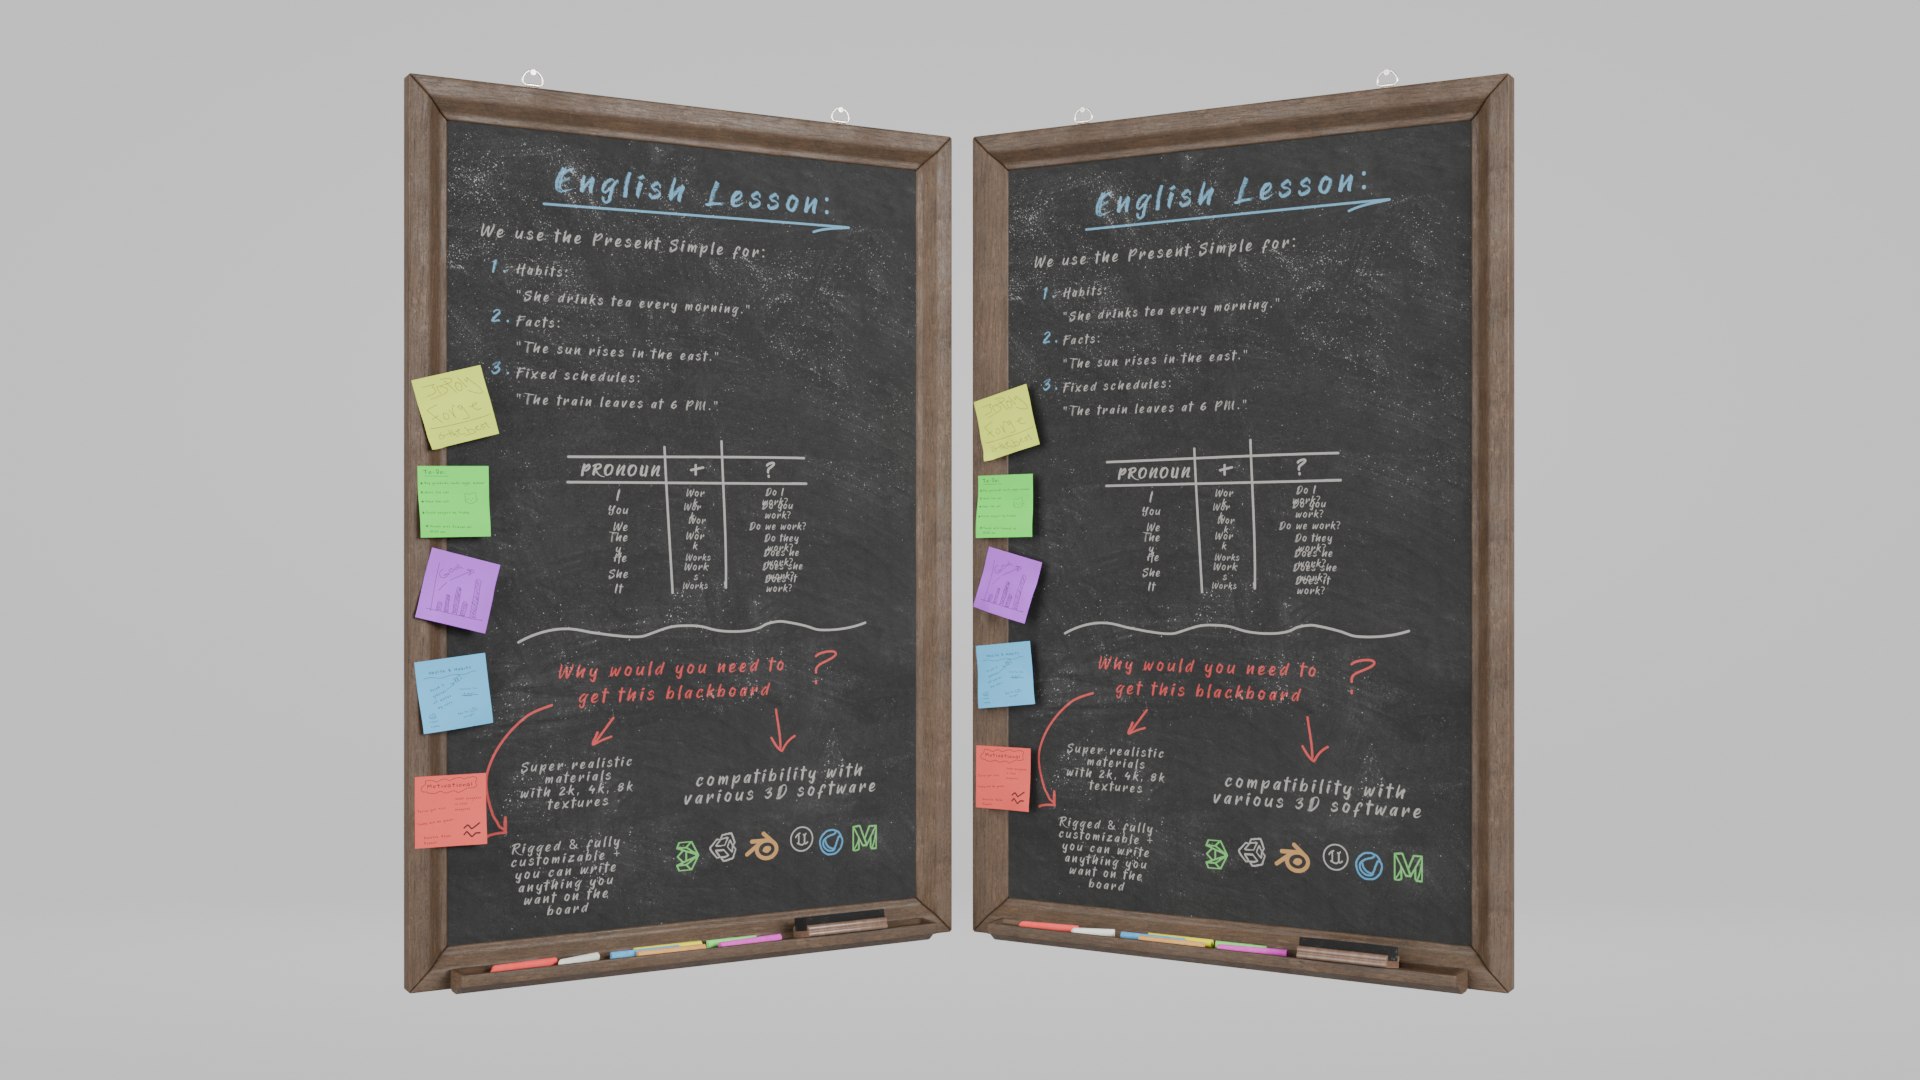 English Lesson:
We use the Present Simple for:
1. Habits:
"She drinks tea every morning."
2. Facts:
"The sun rises in the east."
3. Fixed schedules:
"The train leaves at 6 PM."
PRONOUN + ?
I Wor Do I
work?
You Wor Do you
k work?
We Wor Do we work?
k
The Wor Do they
y k work?
He Works Does he
work?
She Work Does she
s work?
It Works Does it
work?
Why would you need to ?
get this blackboard
Super realistic
materials
with 2k, 4k, 8k
textures
compatibility with
various 3D software
Rigged & fully
customizable +
you can write
anything you
want on the
board
Forge
To Do:
Motivational
English Lesson:
We use the Present Simple for:
1. Habits:
"She drinks tea every morning."
2. Facts:
"The sun rises in the east."
3. Fixed schedules:
"The train leaves at 6 PM."
PRONOUN + ?
I Wor Do I
work?
You Wor Do you
k work?
We Wor Do we work?
k
The Wor Do they
y k work?
He Works Does he
work?
She Work Does she
s work?
It Works Does it
work?
Why would you need to ?
get this blackboard
Super realistic
materials
with 2k, 4k, 8k
textures
compatibility with
various 3D software
Rigged & fully
customizable +
you can write
anything you
want on the
board
Forge
To Do:
Motivational